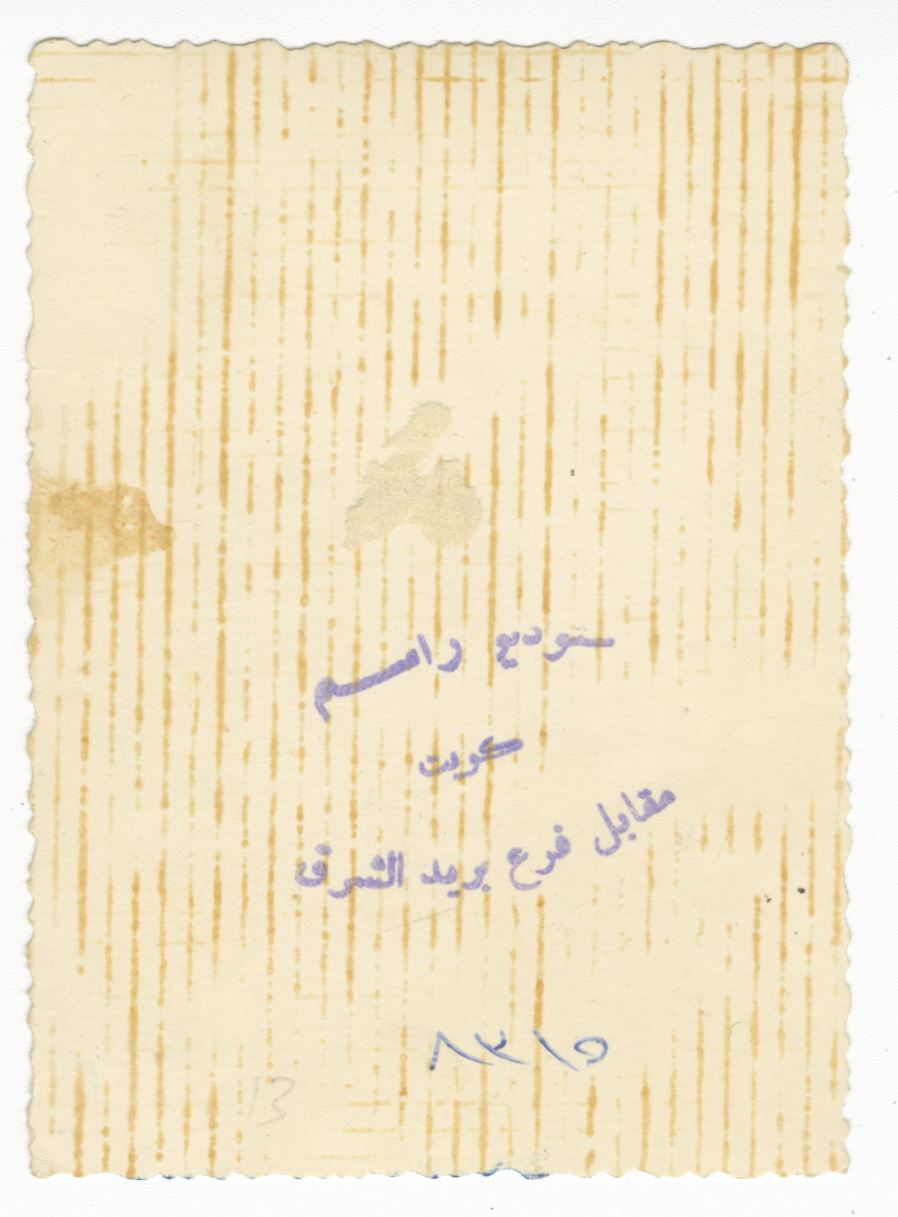 ستوديو راسم
كويت
مقابل فرع بريد الشرق
٨٣١٥
13